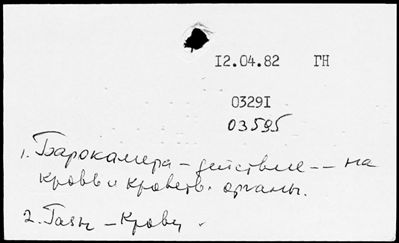 12.04.82 ГН
03291
03595
1. Барокамера – действие -- на
кровь и кроветв. органы.
2. Газы – Крови.